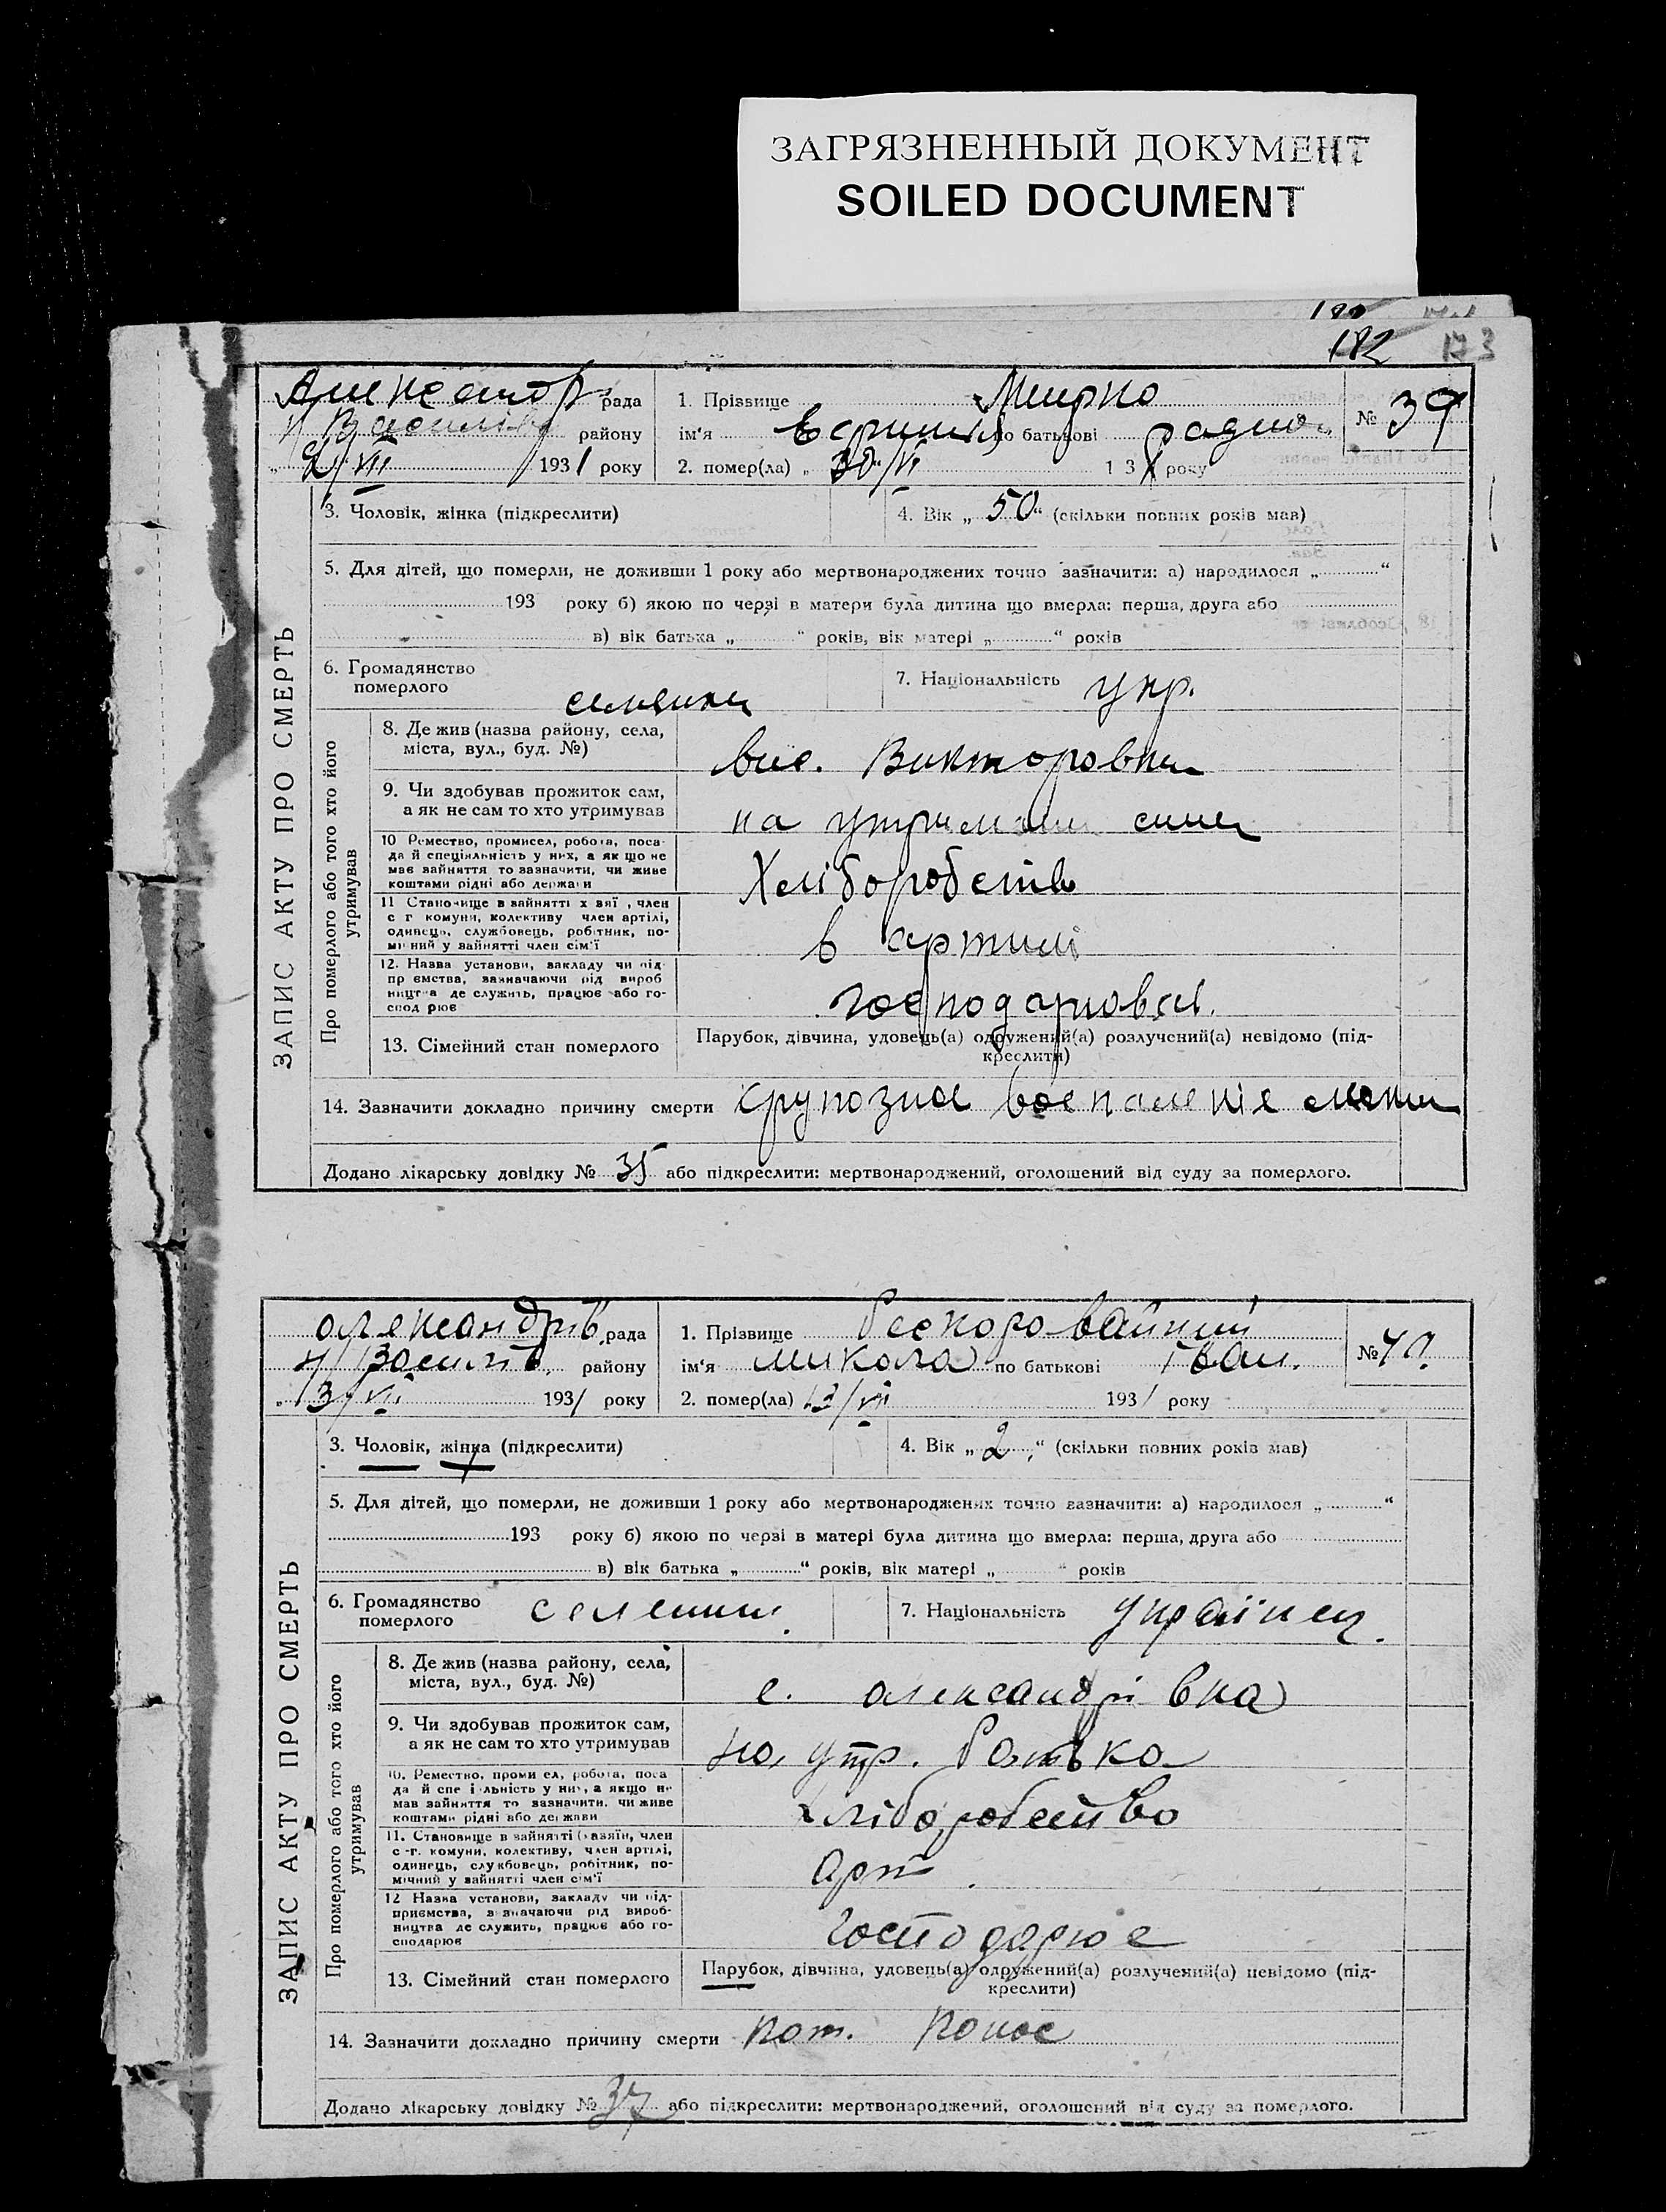 ЗАГРЯЗНЕННЫЙ ДОКУМЕНТ
SOILED DOCUMENT
182 173
ЗАПИС АКТУ ПРО СМЕРТЬ
рада
району
2/VII 1931 року
1. Прізвище
ім'я по батькові
2. помер(ла) „ 30“/VI 1 3 року
№ 39
3. Чоловік, жінка (підкреслити)
4. Вік „ 50“ (скільки повних років мав)
5. Для дітей, що померли, не доживши 1 року або мертвонароджених точно зазначити: а) народилося „ “
193 року б) якою по черзі в матери була дитина що вмерла: перша, друга або
в) вік батька „ “ років, вік матері „ “ років
6. Громадянство
померлого
7. Національність укр.
Про померлого або того хто його
утримував
8. Де жив (назва району, села,
міста, вул., буд. №)
9. Чи здобував прожиток сам,
а як не сам то хто утримував
на
10 Ремество, промисел, робота, поса-
да й спеціяльність у них, а як що не
мав зайняття то зазначити, чи живе
коштами рідні або держави
11 Становище в зайнятті х зяї , член
с г комуни, колективу член артілі,
одинець, службовець, робітник, по-
мі ний у зайнятті член сім'ї
в артилі
12. Назва установи, закладу чи під-
пр ємства, зазначаючи рід вироб
ництва де служить, працює або го-
спод рює
13. Сімейний стан померлого
Парубок, дівчина, удовець(а) одружений(а) розлучений(а) невідомо (під-
креслити)
14. Зазначити докладно причину смерти
Додано лікарську довідку № 35 або підкреслити: мертвонароджений, оголошений від суду за померлого.
ЗАПИС АКТУ ПРО СМЕРТЬ
олександрів рада
району
„ 3/VII. 1931 року
1. Прізвище бескоровайний
ім'я микола по батькові Іван.
2. помер(ла) /VII 1931 року
№ 40.
3. Чоловік, жінка (підкреслити)
4. Вік „ 2 “ (скільки повних років мав)
5. Для дітей, що померли, не доживши 1 року або мертвонароджених точно зазначити: а) народилося „ “
193 року б) якою по черзі в матері була дитина що вмерла: перша, друга або
в) вік батька „ “ років, вік матері „ “ років
6. Громадянство
померлого
7. Національність українец.
Про померлого або того хто його
утримував
8. Де жив (назва району, села,
міста, вул., буд. №)
с. олександрівка
9. Чи здобував прожиток сам,
а як не сам то хто утримував
на утр. батька
10. Ремество, проми ел, робота, поса
да й спе і льність у них, а якщо не
мав зайняття то зазначити, чи живе
коштами рідні або держави
хліборобство
11. Становище в зайнятті (хазяїн, член
с-г. комуни, колективу, член артілі,
одинець, службовець, робітник, по-
мічний у зайнятті член сім'ї
арт.
12 Назва установи, закладу чи під-
приємства, зазначаючи рід вироб-
ництва де служить, працює або го-
сподарює
господарює
13. Сімейний стан померлого
Парубок, дівчина, удовець(а) одружений(а) розлучений(а) невідомо (під-
креслити)
14. Зазначити докладно причину смерти понос
Додано лікарську довідку № 37 або підкреслити: мертвонароджений, оголошений від суду за померлого.